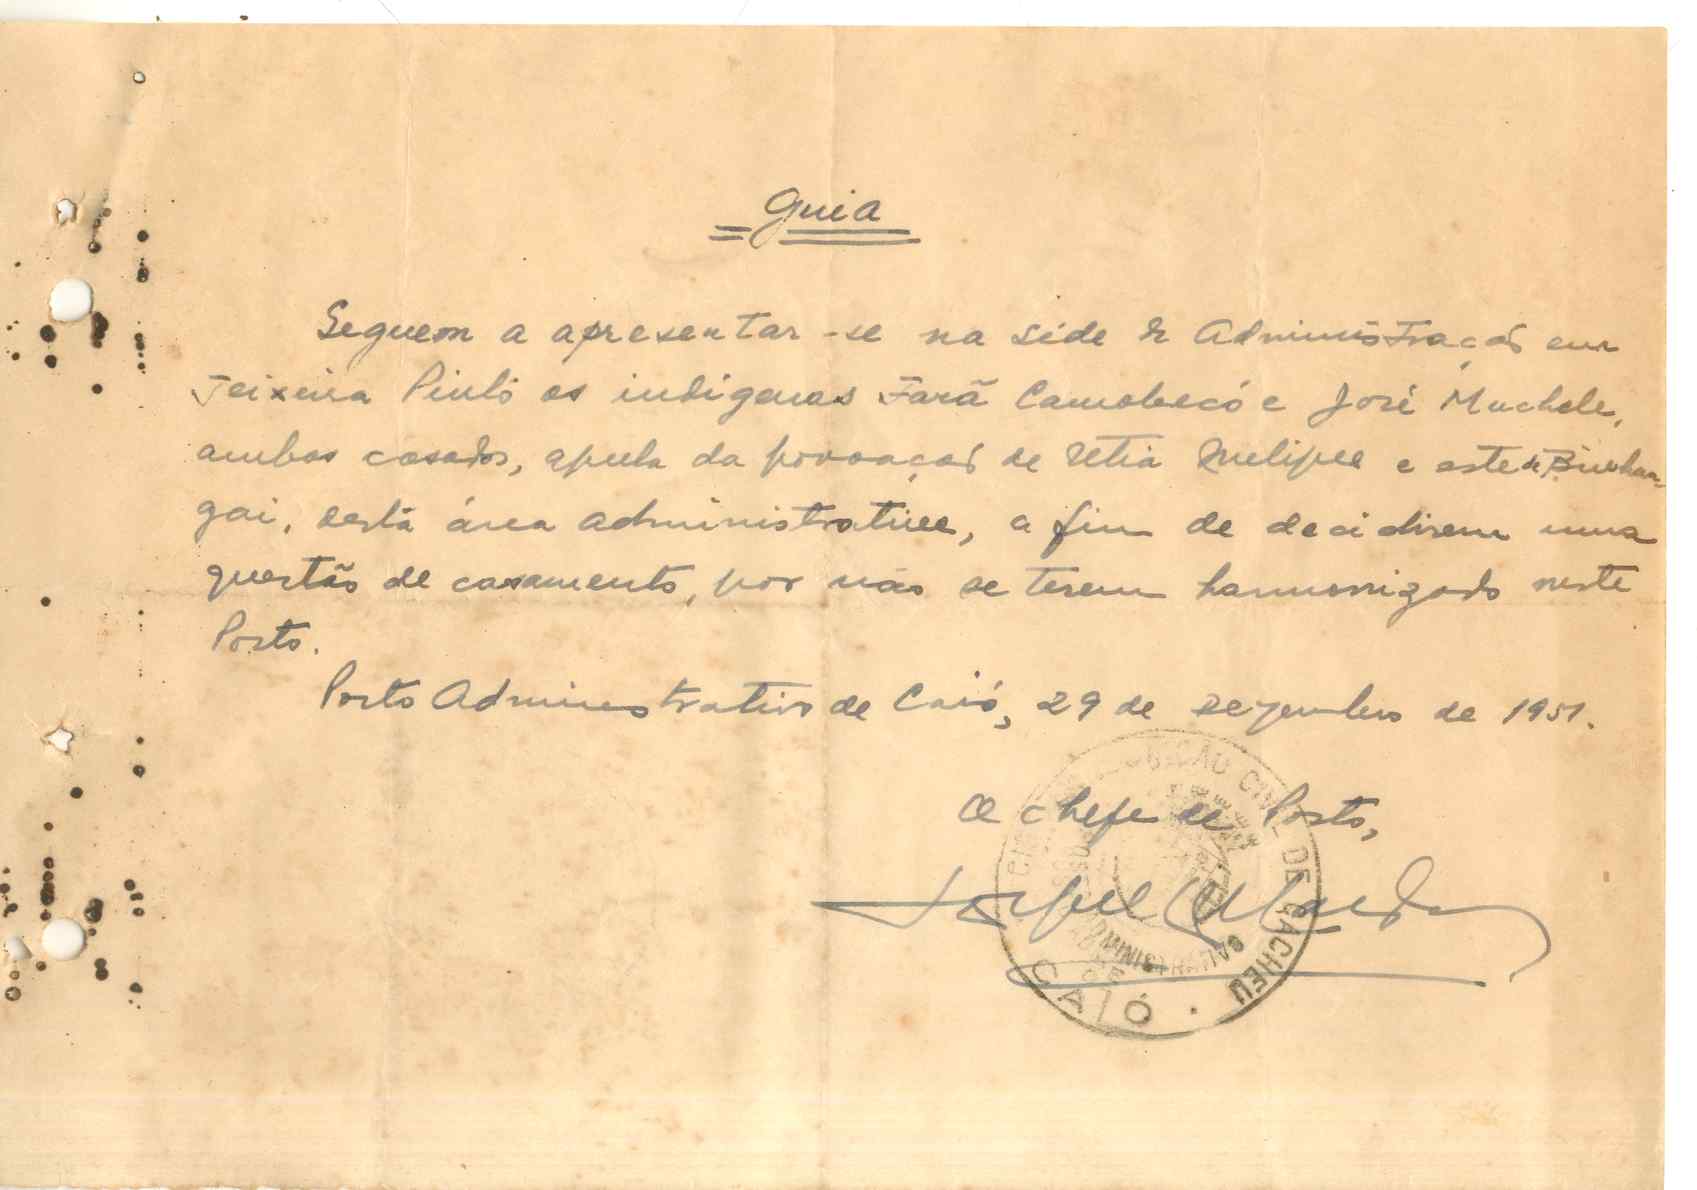 Guia
Seguem a apresentar-se na séde da Administração em
Teixeira Pinto os indigenas Farã Camobecó e José Muchele,
ambos casados, aquela da povoação de Utia Quelipee e este de Binhan-
gai, desta área administrativa, a fim de decidirem uma
questão de casamento, por não se terem harmonizado neste
Posto.
Posto Administrativo de Caió, 29 de Dezembro de 1951.
O chefe de Posto,
CIVIL DE CACHEU
CAIÓ